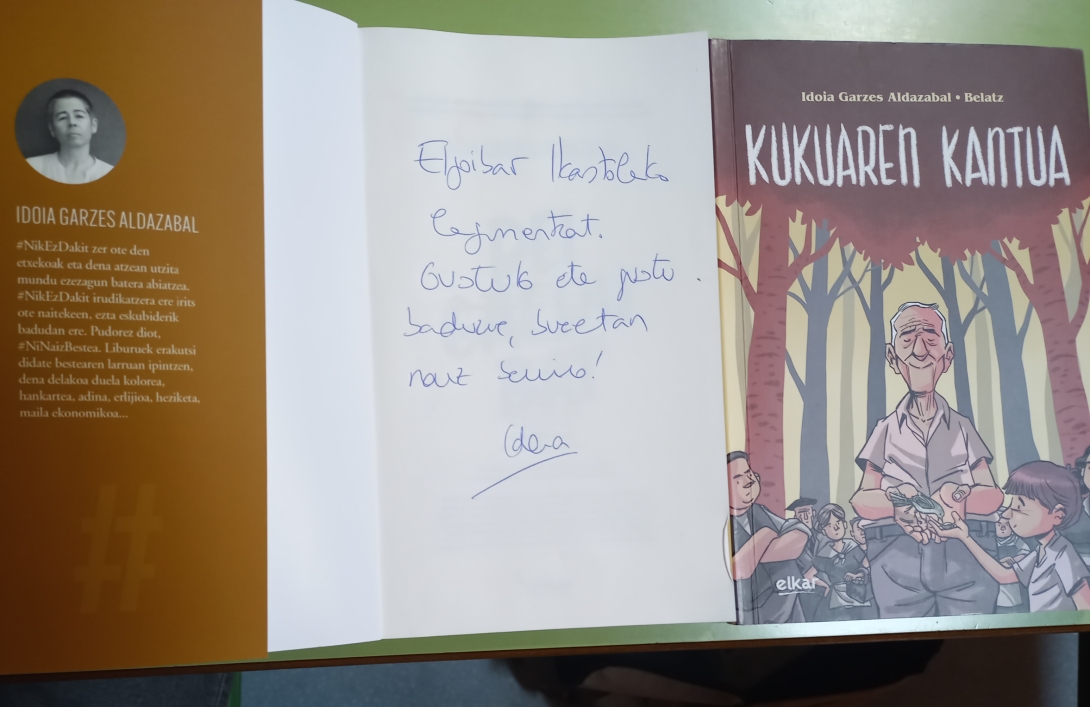 IDOIA GARZES ALDAZABAL
#NikEzDakit zer ote den
etxekoak eta dena atzean utzita
mundu ezezagun batera abiatzea.
#NikEzDakit irudikatzera ere irits
ote naitekeen, ezta eskubiderik
badudan ere. Pudorez diot,
#NiNaizBestea. Liburuek erakutsi
didate bestearen larruan ipintzen,
dena delakoa duela kolorea,
hankartea, adina, erlijioa, heziketa,
maila ekonomikoa...
#
Elgoibar Ikastolako
lagunentzat.
Gustuko eta gustu
baduzue,
naiz
Idoia
Idoia Garzes Aldazabal • Belatz
KUKUAREN KANTUA
elkar